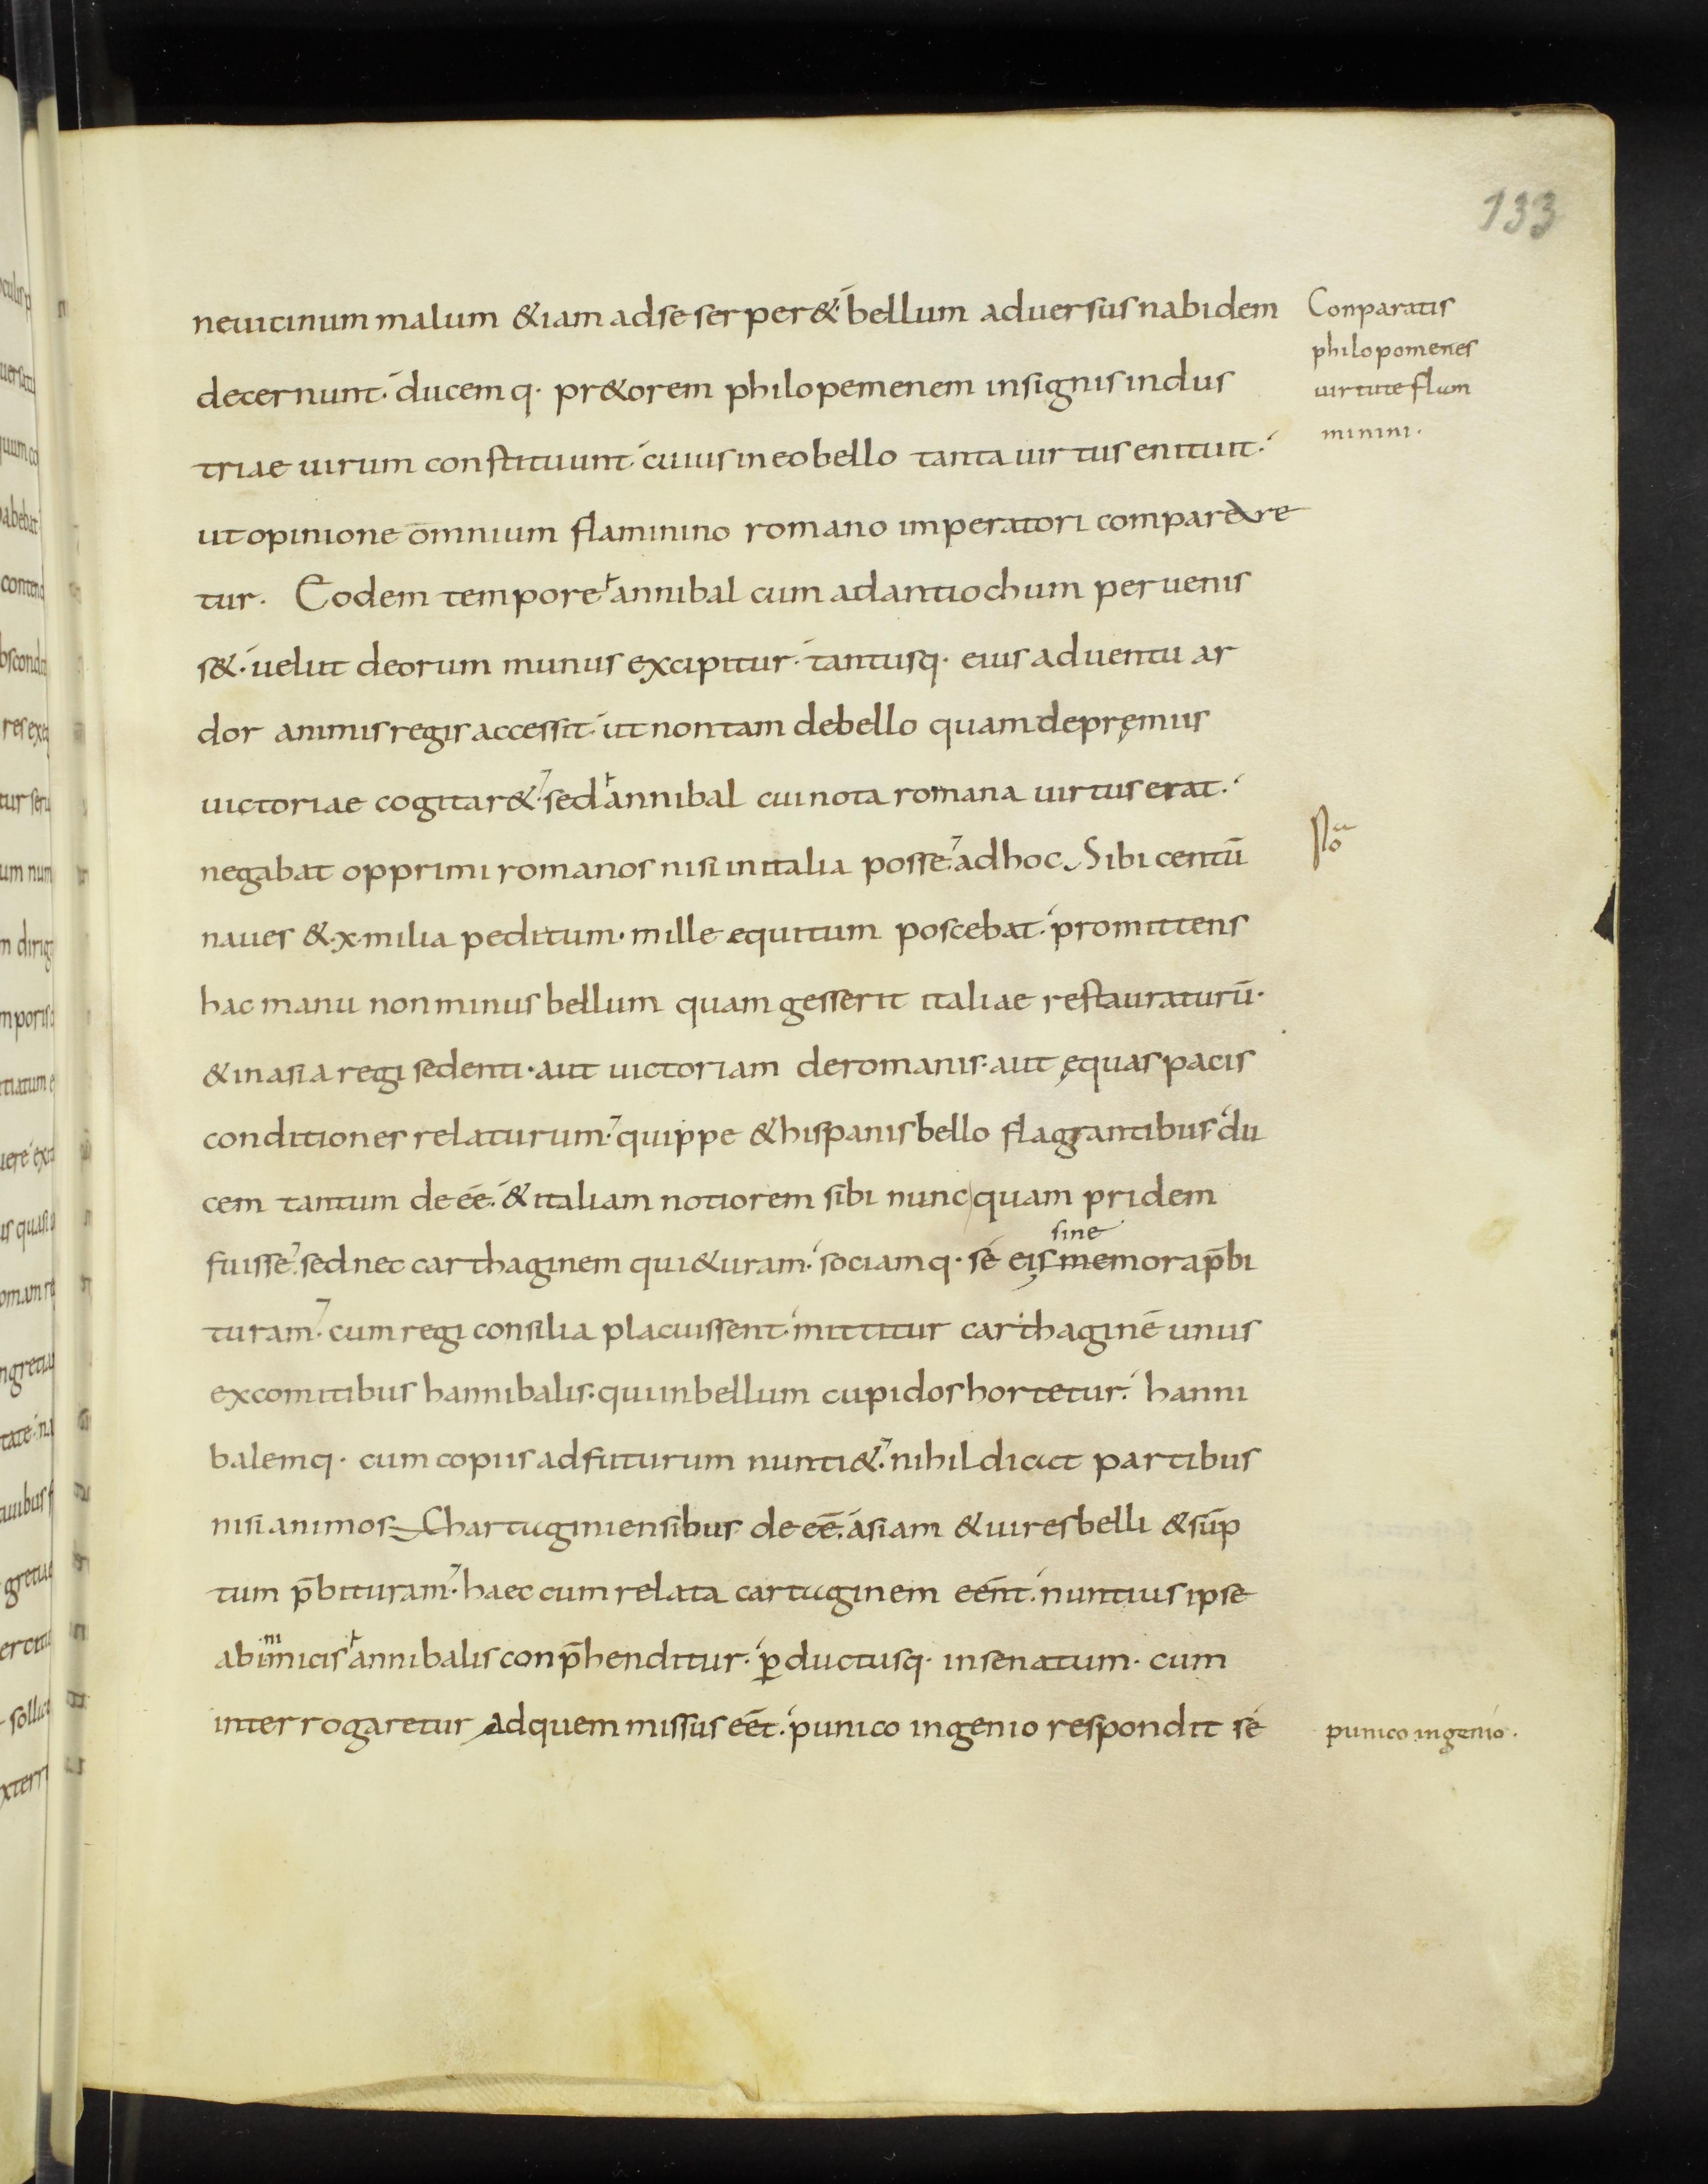 133
neuicinum malum &iam adse serper& bellum aduersus nabidem
decernunt· ducemq· pr&orem philopemenem insignis indus
triae uirum constituunt· cuius ineo bello tanta uirtus enituit·
ut opinione omnium flaminino romano imperatori compar&re
tur· Eodem tempore annibal cum adantiochum peruenis
s&· uelut deorum munus excipitur· tantusq· eius aduentu ar
dor animis regis accessit· ut nontam debello quam depręmiis
uictoriae cogitar&· sed annibal cui nota romana uirtus erat·
negabat opprimi romanos nisi initalia posse· adhoc Sibi centū
naues &·x·milia peditum· mille equitum poscebat· promittens
hac manu non minus bellum quam gesserit italiae restauraturū·
&inasia regi sedenti· aut uictoriam deromanis· aut ęquas pacis
conditiones relaturum· quippe &hispanis bello flagrantibus du
cem tantum deēē· &italiam notiorem sibi nunc quam pridem
sine
fuisse· sed nec carthaginem qui&uram· sociamq· se eis memora p̄bi
turam· cum regi consilia placuissent· mittitur carthaginē unus
excomitibus hannibalis· qui inbellum cupidos hortetur· hanni
balemq· cum copiis adfuturum nunti&· nihil dicat partibus
nisi animos Chartaginiensibus deēē· asiam &uires belli &sūp
tum p̄bituram· haec cum relata cartaginem eēnt· nuntius ipse
abinimicis annibalis conp̄henditur· ꝑductusq· insenatum· cum
interrogaretur adquem missus eēt· punico ingenio respondit se
Conparatis
philopomenes
uirtute flam
minini·
punico ingenio·